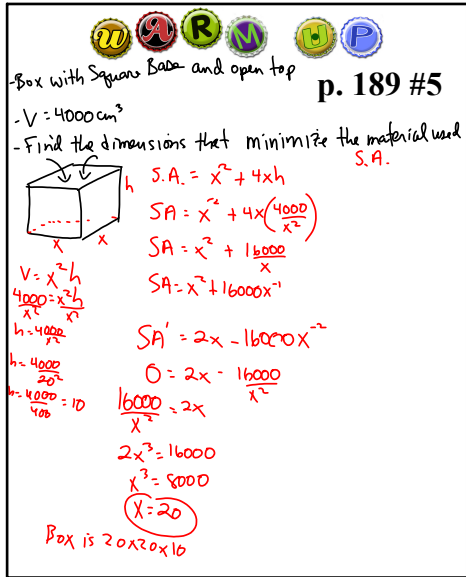 WARM UP
-Box with Square Base and open top
p. 189 #5
-V = 4000cm³
-Find the dimensions that minimize the material used
S.A.
h
x
x
V = x²h
4000/x² = x²h/x²
h = 4000/x²
h = 4000/20²
h = 4000/400 = 10
S.A. = x² + 4xh
SA = x² + 4x(4000/x²)
SA = x² + 16000/x
SA = x² + 16000x⁻¹
SA' = 2x - 16000x⁻²
0 = 2x - 16000/x²
16000/x² = 2x
2x³ = 16000
x³ = 8000
x = 20
Box is 20x20x10